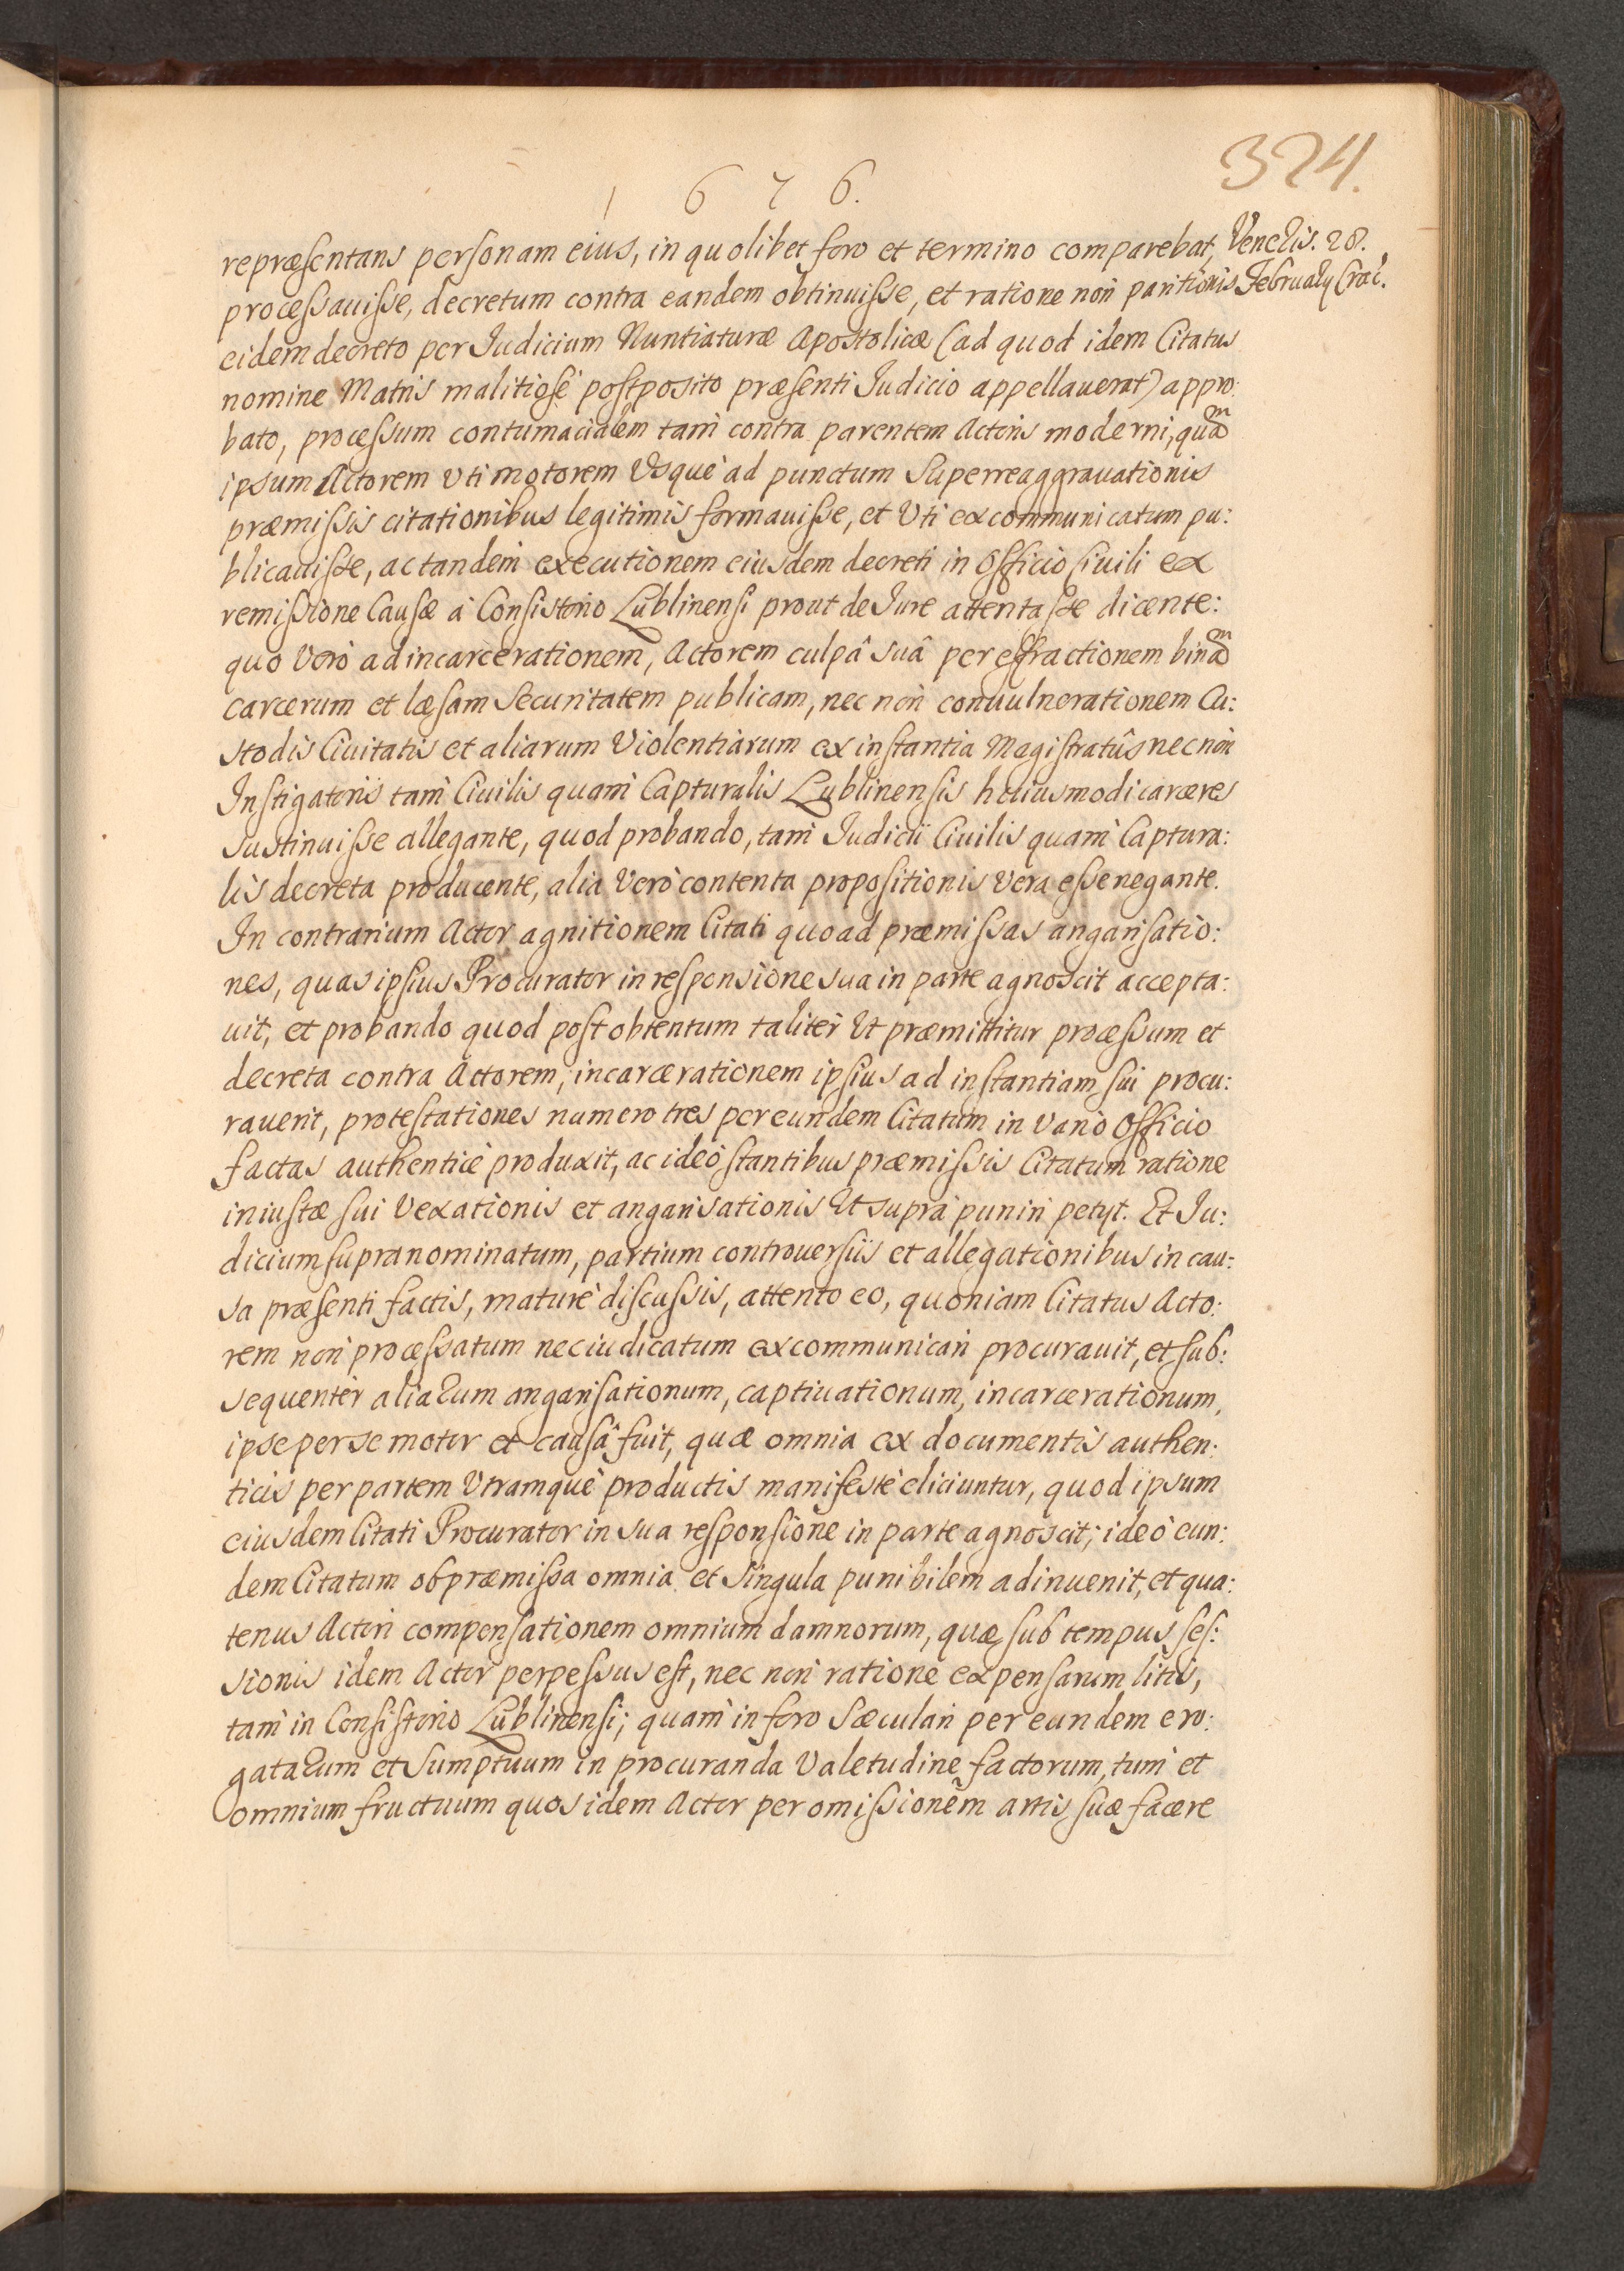 324.
1 6 7 6.
repræsentans personam eius, in quolibet foro et termino comparebat,
Veneris. 28.
processauisse, decretum contra eandem obtinuisse, et ratione non paritionis
February Crac.
eidem decreto per Judicium Nuntiaturæ Apostolicæ (ad quod idem Citatus
nomine Matris malitiosè postposito præsenti Judicio appellauerat) appro:
bato, processum contumacialem tam contra parentem Actoris moderni, quàm
ipsum Actorem Vti motorem Vsque ad punctum Superreaggrauationis
præmissis citationibus legitimis formauisse, et Vti excommunicatum pu:
blicauisse, ac tandem executionem eiusdem decreti in Officio Ciuili ex
remissione Causæ à Consistorio Lublinensi prout de Jure attentasse dicente:
quo Verò ad incarcerationem, Actorem culpâ suâ per effractionem binam
carcerum et læsam Securitatem publicam, nec non conuulnerationem Cu:
stodis Ciuitatis et aliarum Violentiarum ex instantia Magistratûs nec non
Instigatoris tam Ciuilis quam Capturalis Lublinensis huiusmodi carceres
sustinuisse allegante, quod probando, tam Judicii Ciuilis quam Captura:
lis decreta producente, alia Verò contenta propositionis Vera esse negante.
In contrarium Actor agnitionem Citati quoad præmissas angarisatio:
nes, quas ipsius Procurator in responsione sua in parte agnoscit accepta:
uit, et probando quod post obtentum taliter Ut præmittitur processum et
decreta contra Actorem, incarcerationem ipsius ad instantiam sui procu:
rauerit, protestationes numero tres per eundem Citatum in Vario Officio
factas authenticè produxit, ac ideò stantibus præmissis Citatum ratione
iniustæ sui Vexationis et angarisationis Ut supra puniri petyt. Et Ju:
dicium supranominatum, partium controuersiis et allegationibus in cau:
sa præsenti factis, maturè discussis, attento eo, quoniam Citatus Acto:
rem non processatum nec iudicatum excommunicari procurauit, et sub:
sequenter aliarum angarisationum, captiuationum, incarcerationum,
ipse per se motor et causa fuit, quæ omnia ex documentis authen:
ticis per partem Vtramque productis manifestè eliciuntur, quod ipsum
eiusdem Citati Procurator in sua responsione in parte agnoscit; ideò eun:
dem Citatum ob præmissa omnia et singula punibilem adinuenit, et qua:
tenus Actori compensationem omnium damnorum, quæ sub tempus ses:
sionis idem Actor perpessus est, nec non ratione expensarum litis,
tam in Consistorio Lublinensi; quam in foro Sæculari per eundem ero:
gatarum et Sumptuum in procuranda Valetudine factorum, tum et
omnium fructuum quos idem Actor per omissionem artis suæ facere